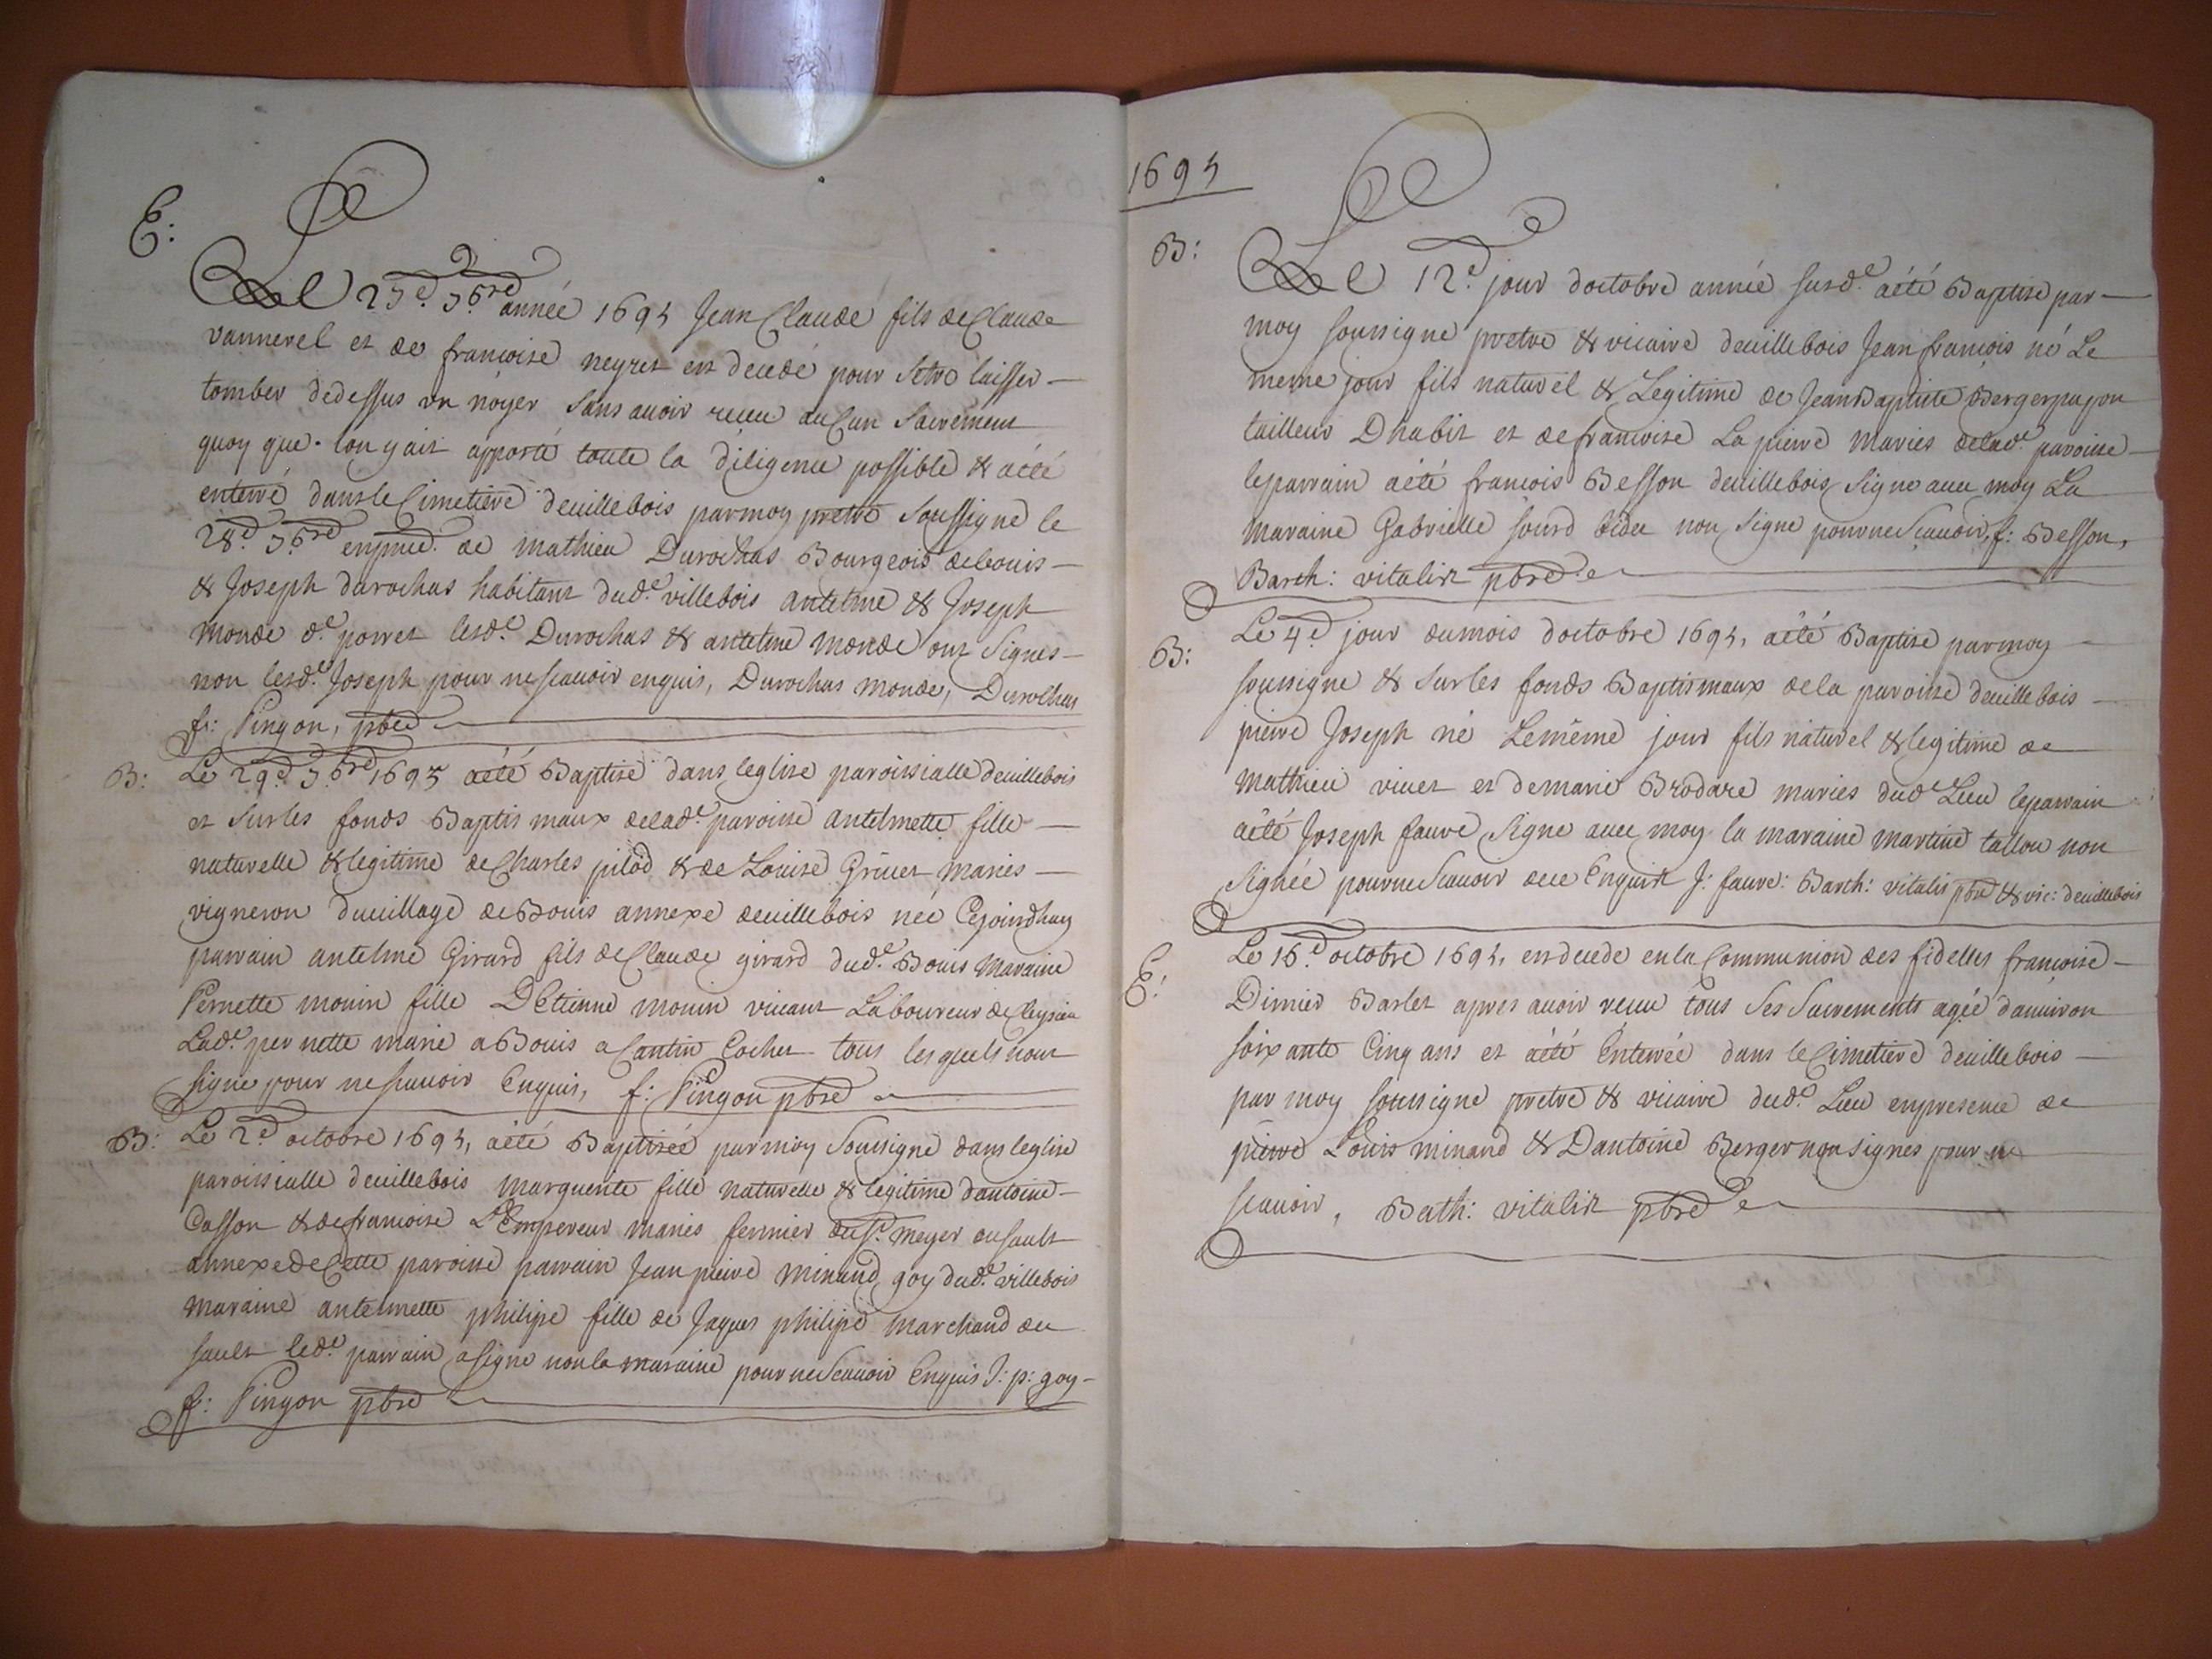 E:
Le 27e 7bre année 1695 Jean Claude fils de Claude
vannerel et de francoise neyret est decedé pour setre laisser
tomber dedessus un noyer sans auoir receu au Cun Sacrement
quoy que lon y ait apporté toute la diligence possible & a été
enterré dans le Cimetiere deuillebois par moy pretre soussigné le
28e 7bre en pnce de mathieu Durochas Bourgeois de bouis
& Joseph durochas habitant dud.e villebois antelme & Joseph
monde d.e porret lesd.e Durochas & antelme monde ont Signes
non lesd.e Joseph pour ne scauoir enquis, Durochas monde, Durochas
fr: Pingon, pbre
B: Le 29e 7bre 1695 a été Baptisé dans leglise paroissialle deuillebois
et sur les fonds Baptis maux de lad.e paroisse antelmette fille
naturelle & legitime de Charles pilod & de Louise Griuet mariés
vigneron duuillage de Bouis annexe deuillebois née Cejourdhuy
parrain antelme Girard fils de Claude girard dud.e Bouis Maraine
Pernette monin fille D'Etienne monin viuant Laboureur de Cleysieu
Lad.e per nette marié a Bouis a Cantin Cochet tous les quels nont
signe pour ne scauoir Enquis, f: Pingon pbre
B: Le 2e octobre 1695, a été Baptisée par moy Soussigne dans leglise
paroissialle deuillebois marguerite fille naturelle & legitime dantoine
Casson & de francoise L'Empereur mariés fermier du Sr. meyer ausault
annexe de Cette paroisse parrain Jean pierre minand goy dud.e villebois
maraine antelmette philipe fille de Jaques philipe marchand du
sault led.e parrain a signe non la maraine pour ne Scauoir Enquis J: p: goy
fr: Pingon pbre
1695
B: Le 12e jour doctobre année susd.e a été Baptise par
moy soussigne pretre & vicaire deuillebois Jean francois né Le
meme jour fils naturel & Legitime de Jean Baptiste Berger pagon
tailleur Dhabit et de francoise La pierre Mariés de lad.e paroisse
le parrain a été francois Besson deuillebois Signe auec moy La
maraine Gabrielle sourd non Signe pour ne Scauoir, f: Besson,
Barth: vitalis pbre
B: Le 4e jour du mois doctobre 1695, a été Baptise par moy
soussigne & Sur les fonds Baptismaux de la paroisse deuillebois
pierre Joseph né Le même jour fils naturel & legitime de
mathieu viuet et de marie Brodare mariés dud.e Lieu le parrain
a été Joseph faure Signe auec moy la maraine martine tallon non
Signée pour ne Scauoir de ce Enquise J: faure: Barth: vitalis pbre & vic: deuillebois
E: Le 16e octobre 1695, est decede en la Communion des fidelles francoise
Dimier Barlet apres auoir receu tous Ses Sacrements agée danuiron
soixante Cinq ans et a été Enterrée dans le Cimetiere deuillebois
par moy soussigne pretre & vicaire dud.e Lieu en presence de
pierre Louis minand & Dantoine Berger non signes pour ne
scauoir, Barth: vitalis pbre